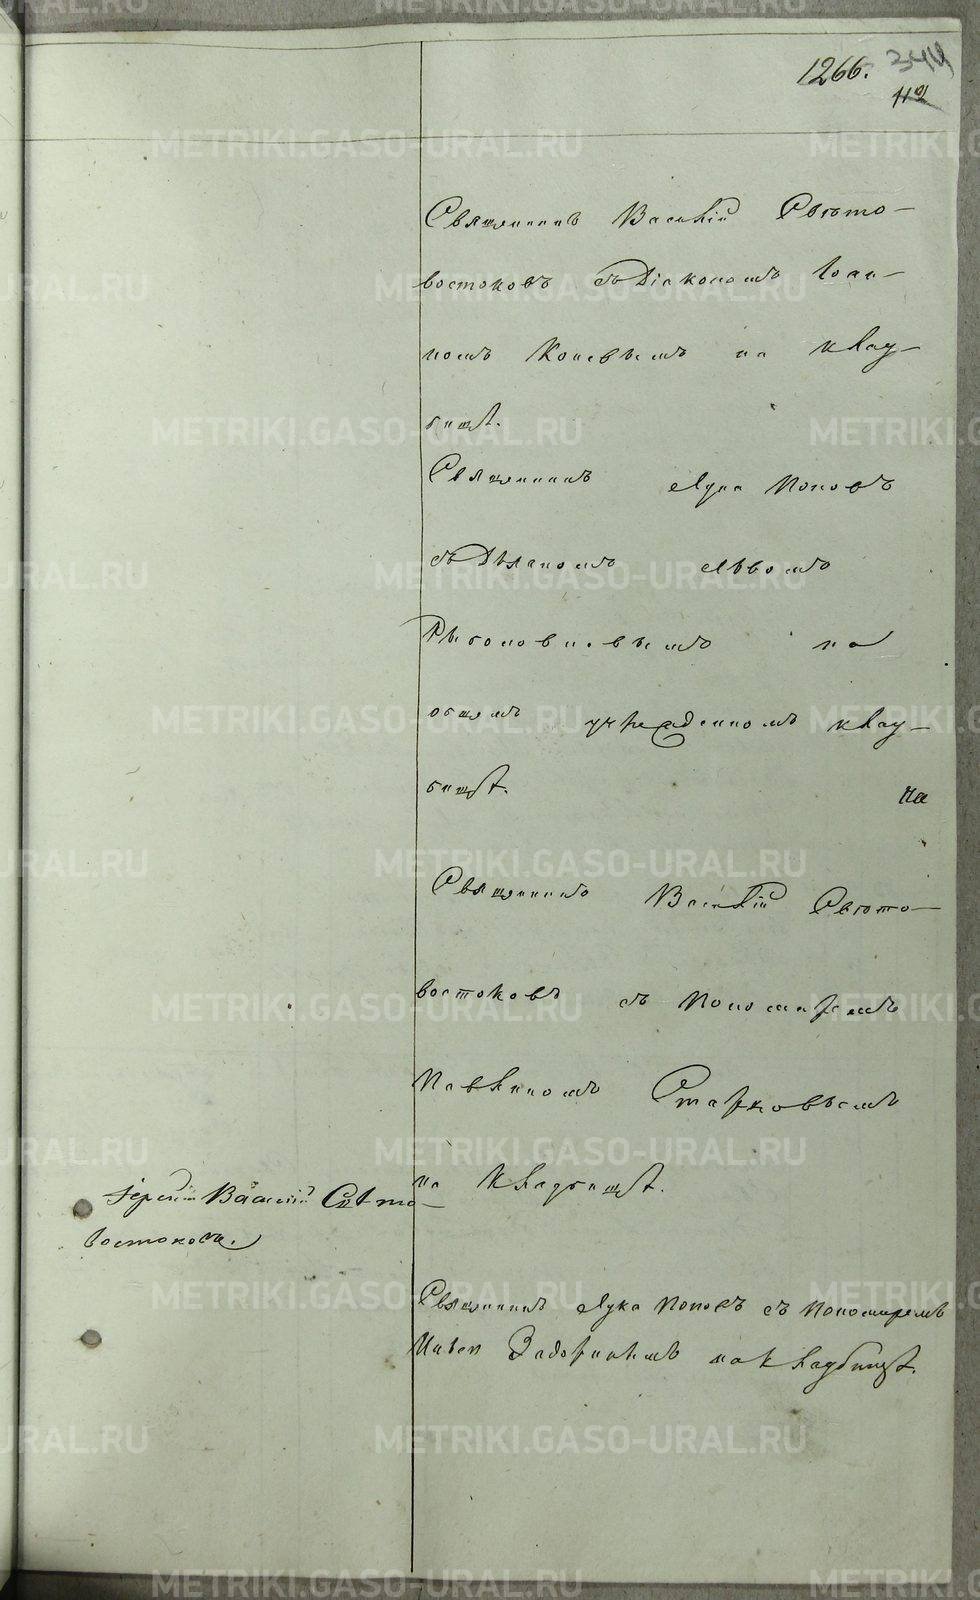 1266.
344
112
Священникъ Василій Свѣто-
востоковъ съ Діакономъ Іоан-
номъ Коневымъ на клад-
бищѣ.
Священникъ Лука Поповъ
съ Діякономъ Львомъ
на
общемъ учрежденномъ клад-
бищѣ. на
Священникъ Василій Свѣто-
востоковъ съ Пономаремъ
Павлиномъ Старковымъ
на кладбищѣ.
Іерей Василій Свѣто-
востоковъ.
Священникъ Лука Поповъ съ Пономаремъ
Задоринымъ на кладбищѣ.
METRIKI.GASO-URAL.RU